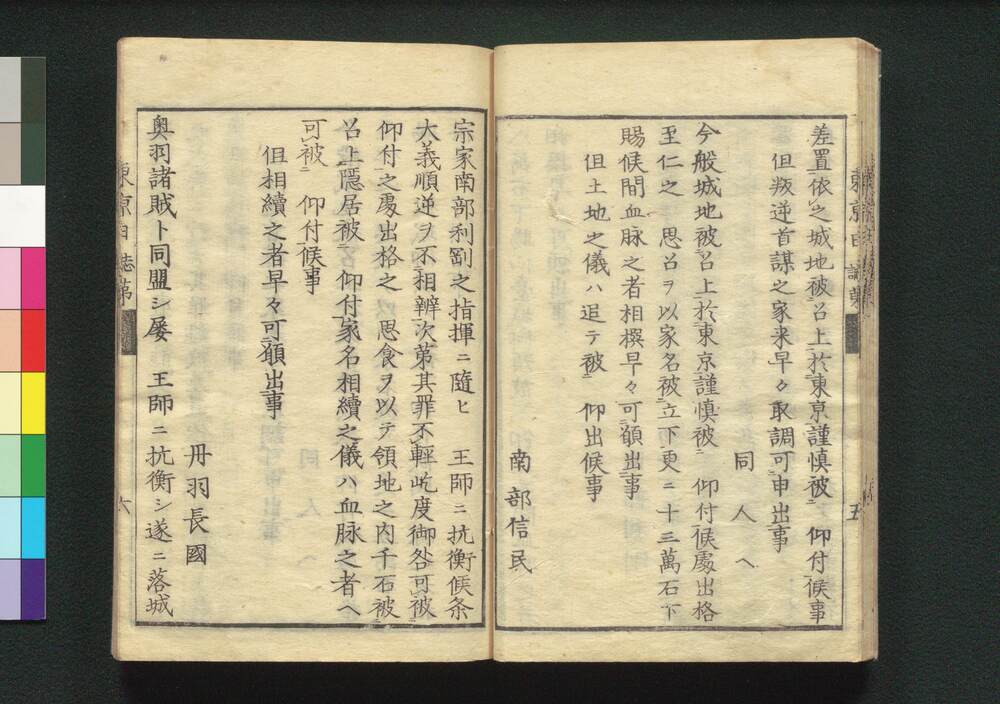 差置依之城地被召上於東京謹慎被　仰付候事
但叛逆首謀之家来早々取調可申出事
同人へ
今般城地被召上於東京謹慎被　仰付候處出格
至仁之　思召ヲ以家名被立下更ニ十三萬石下
賜候間血脉之者相撰早々可願出事
但土地之儀ハ追テ被　仰出候事
南部信民
宗家南部利剛之指揮ニ隨ヒ　王師ニ抗衡候条
大義順逆ヲ不相辨次第其罪不輕屹度御咎可被
仰付之處出格之　思食ヲ以テ領地之内千石被
召上隱居被　仰付家名相續之儀ハ血脉之者へ
可被　仰付候事
但相續之者早々可願出事
丹羽長國
奥羽諸賊ト同盟シ屡　王師ニ抗衡シ遂ニ落城
東京日誌第
五
東京日誌第
六